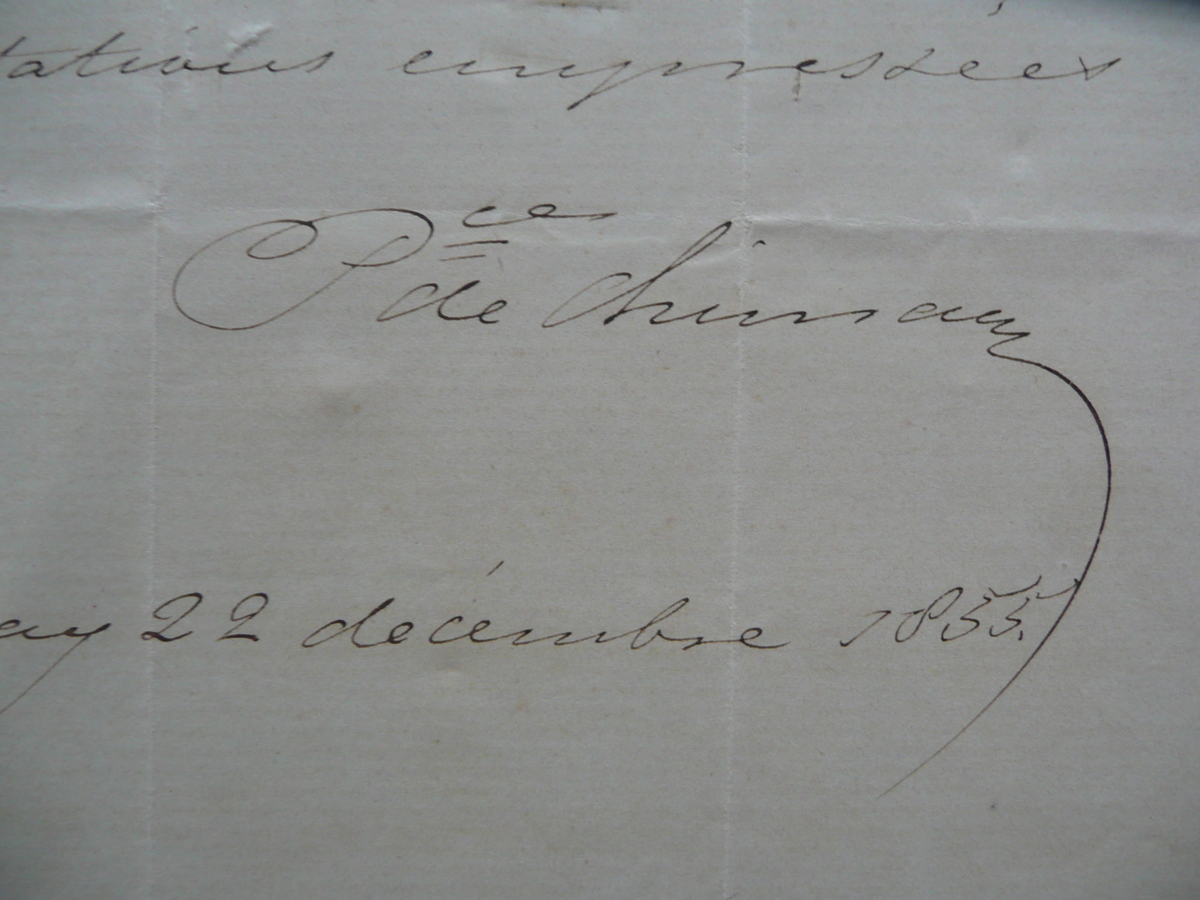 tations empressées
Pce de Chimay
ay 22 décembre 1855.